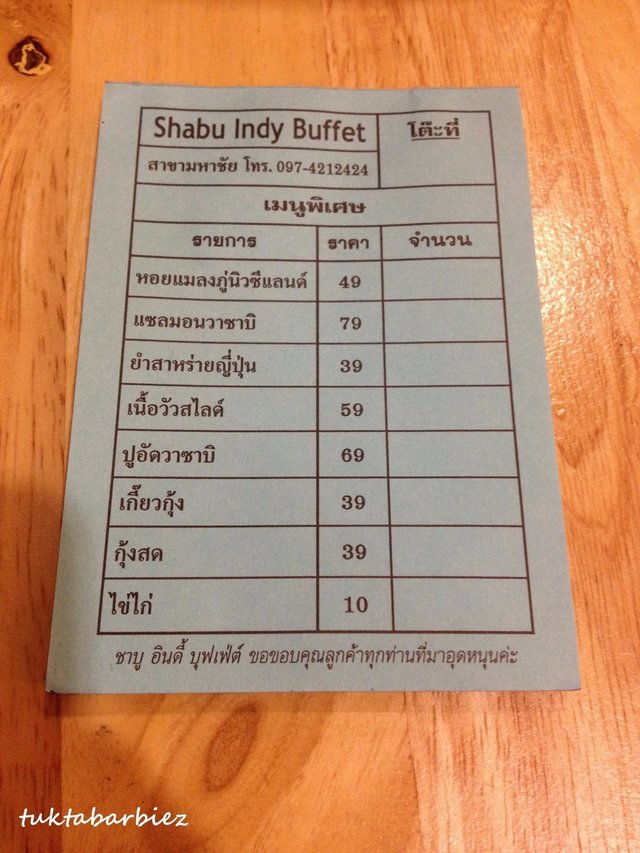 Shabu Indy Buffet โต๊ะที่
สาขามหาชัย โทร. 097-4212424
เมนูพิเศษ
รายการ ราคา จำนวน
หอยแมลงภู่นิวซีแลนด์ 49
แซลมอนวาซาบิ 79
ยำสาหร่ายญี่ปุ่น 39
เนื้อวัวสไลด์ 59
ปูอัดวาซาบิ 69
เกี๊ยวกุ้ง 39
กุ้งสด 39
ไข่ไก่ 10
ชาบู อินดี้ บุฟเฟ่ต์ ขอขอบคุณลูกค้าทุกท่านที่มาอุดหนุนค่ะ
tuktabarbiez